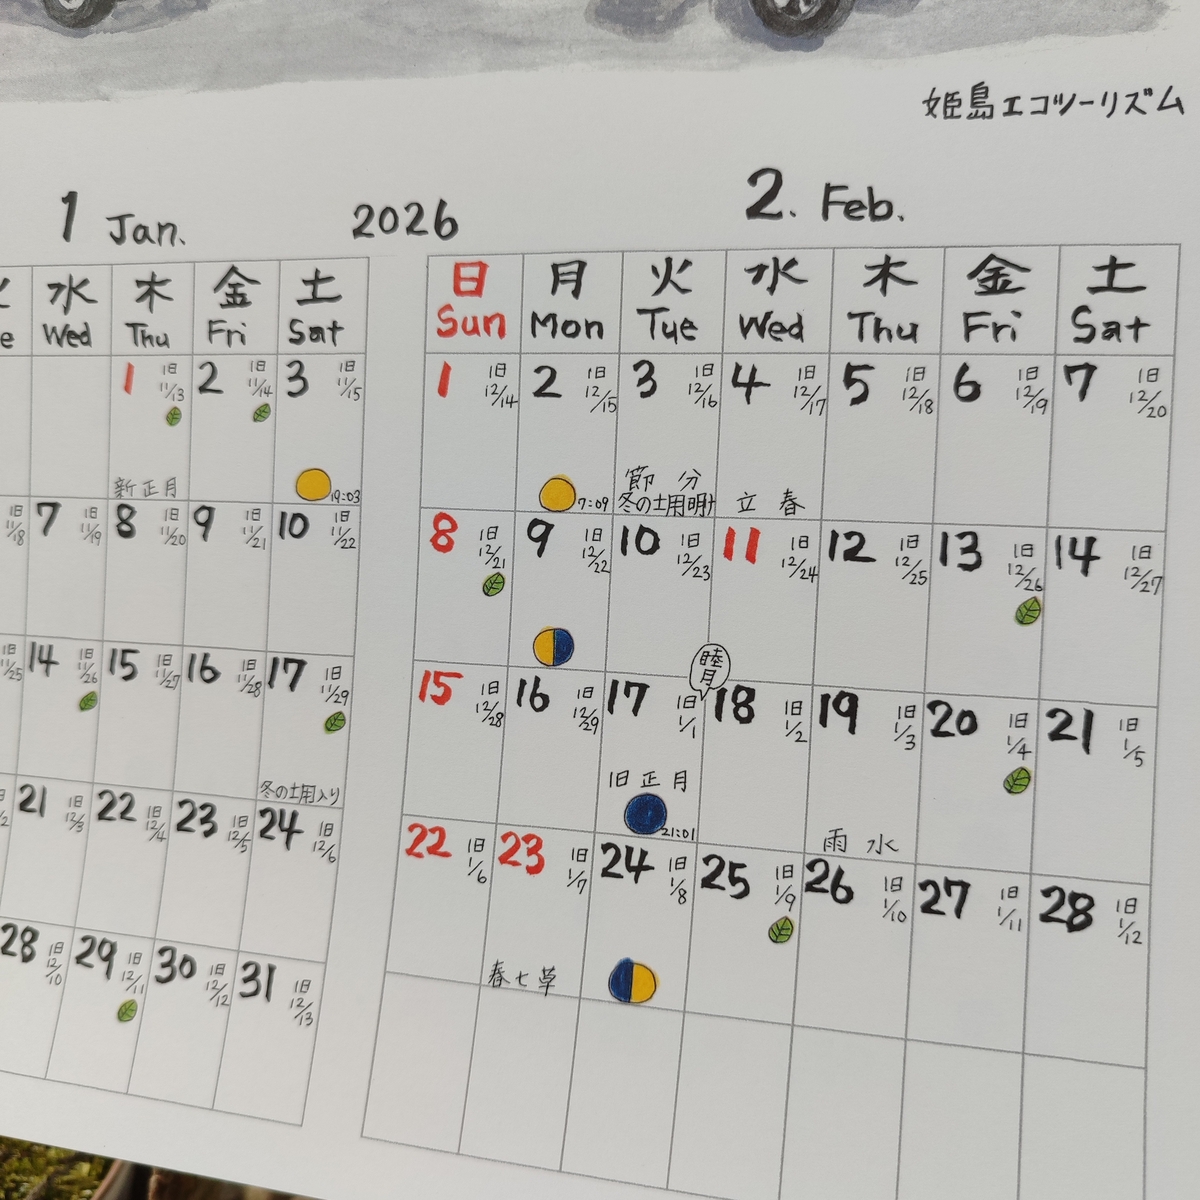 姫島エコツーリズム
1 Jan.
2026
水 木 金 土
e Wed Thu Fri Sat
1 旧11/13 2 旧11/14 3 旧11/15
新正月 19:03
旧11/18 7 旧11/19 8 旧11/20 9 旧11/21 10 旧11/22
旧11/25 14 旧11/26 15 旧11/27 16 旧11/28 17 旧11/29
冬の土用入り
21 旧12/3 22 旧12/4 23 旧12/5 24 旧12/6
28 旧12/10 29 旧12/11 30 旧12/12 31 旧12/13
2. Feb.
日 月 火 水 木 金 土
Sun Mon Tue Wed Thu Fri Sat
1 旧12/14 2 旧12/15 3 旧12/16 4 旧12/17 5 旧12/18 6 旧12/19 7 旧12/20
節分
7:09 冬の土用明け 立春
8 旧12/21 9 旧12/22 10 旧12/23 11 旧12/24 12 旧12/25 13 旧12/26 14 旧12/27
睦月
15 旧12/28 16 旧12/29 17 旧1/1 18 旧1/2 19 旧1/3 20 旧1/4 21 旧1/5
旧正月
21:01 雨水
22 旧1/6 23 旧1/7 24 旧1/8 25 旧1/9 26 旧1/10 27 旧1/11 28 旧1/12
春七草